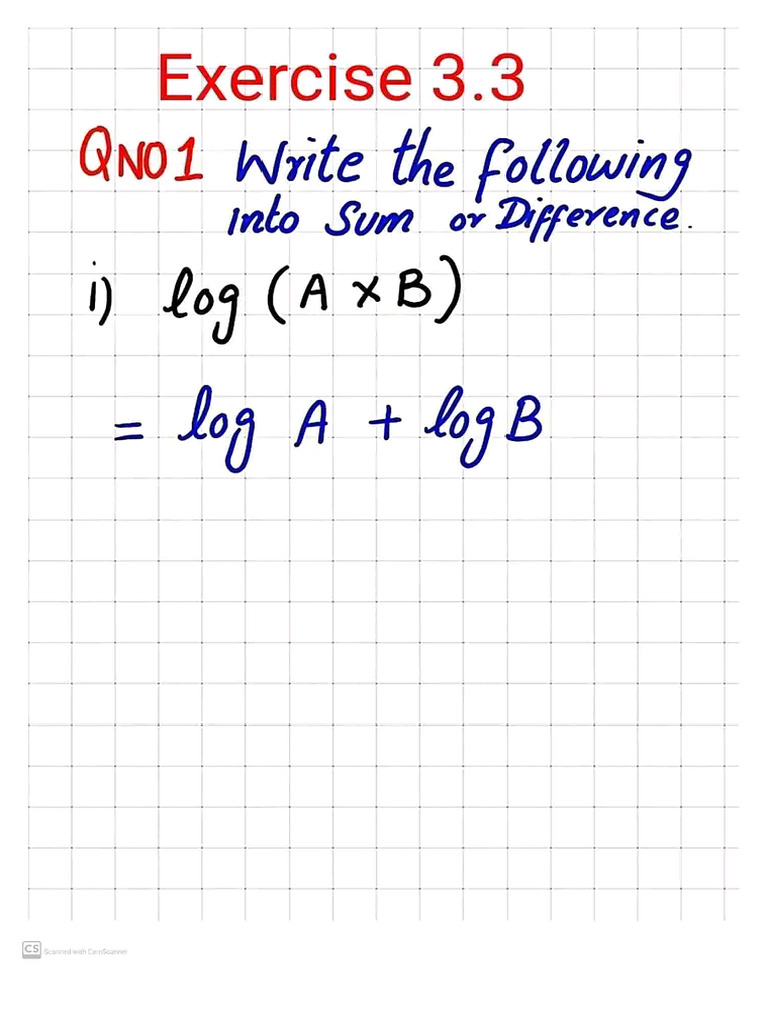 Exercise 3.3
QNO1 Write the following
into Sum or Difference.
i) log (A × B)
= log A + log B
CS Scanned with CamScanner